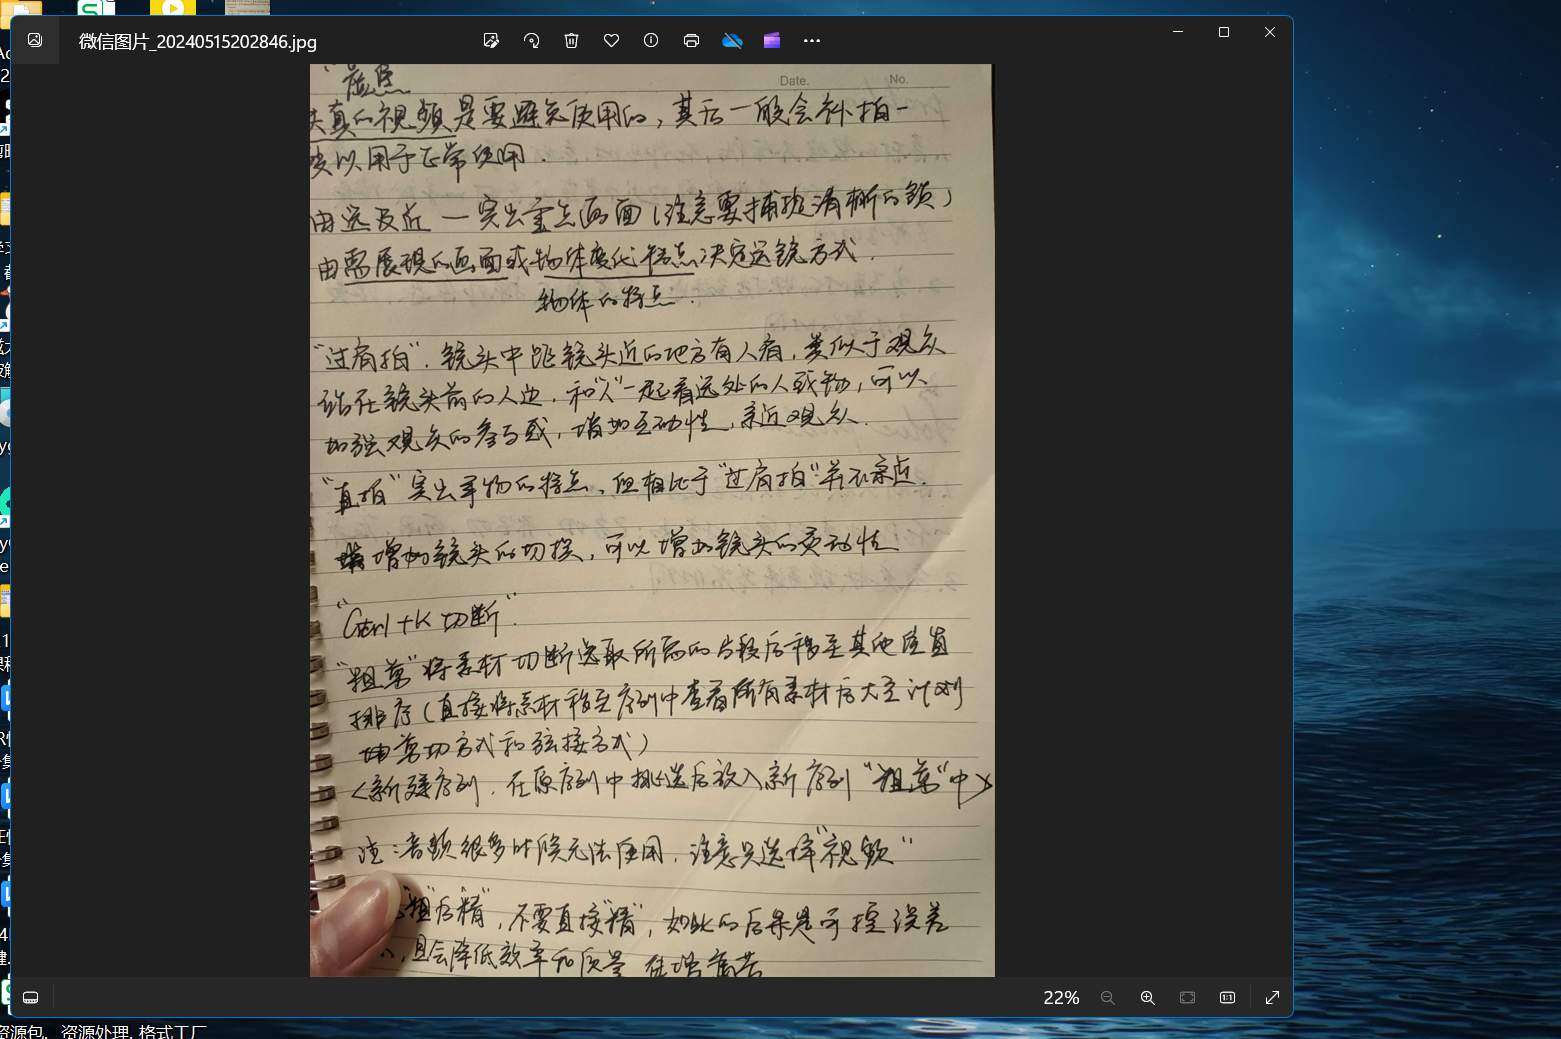 微信图片_20240515202846.jpg
Date. No.
"虚焦
失真的视频是要避免使用的，其后一般会补拍一
以用于正常使用.
由远及近 — 突出重点画面(注意要捕捉清晰的镜)
由需展现的画面或物体变化特点决定运镜方式.
物体的特点.
"过肩拍". 镜头中距镜头近的地方有人肩, 类似于观众
站在镜头前的人边, 和"人"一起看远处的人或物, 可以
加强观众的参与感, 增加互动性, 亲近观众.
"直拍"突出事物的特点, 但相比于"过肩拍"并不亲近.
增加镜头的切换, 可以增加镜头的灵动性
"Ctrl+K 切断".
"粗剪"将素材切断选取所需的片段后移至其他位置
排序(直接将素材移至序列中查看所有素材后大至计划
剪切方式和弦接方式)
<新建序列, 在原序列中挑选后放入新序列"粗剪"中>
注:音频很多时候无法使用, 注意只选择"视频"
"粗"后"精", 不要直接"精", 如此的后果是可控误差
且会降低效率和质量 徒增痛苦
22%
资源包、资源处理, 格式工厂